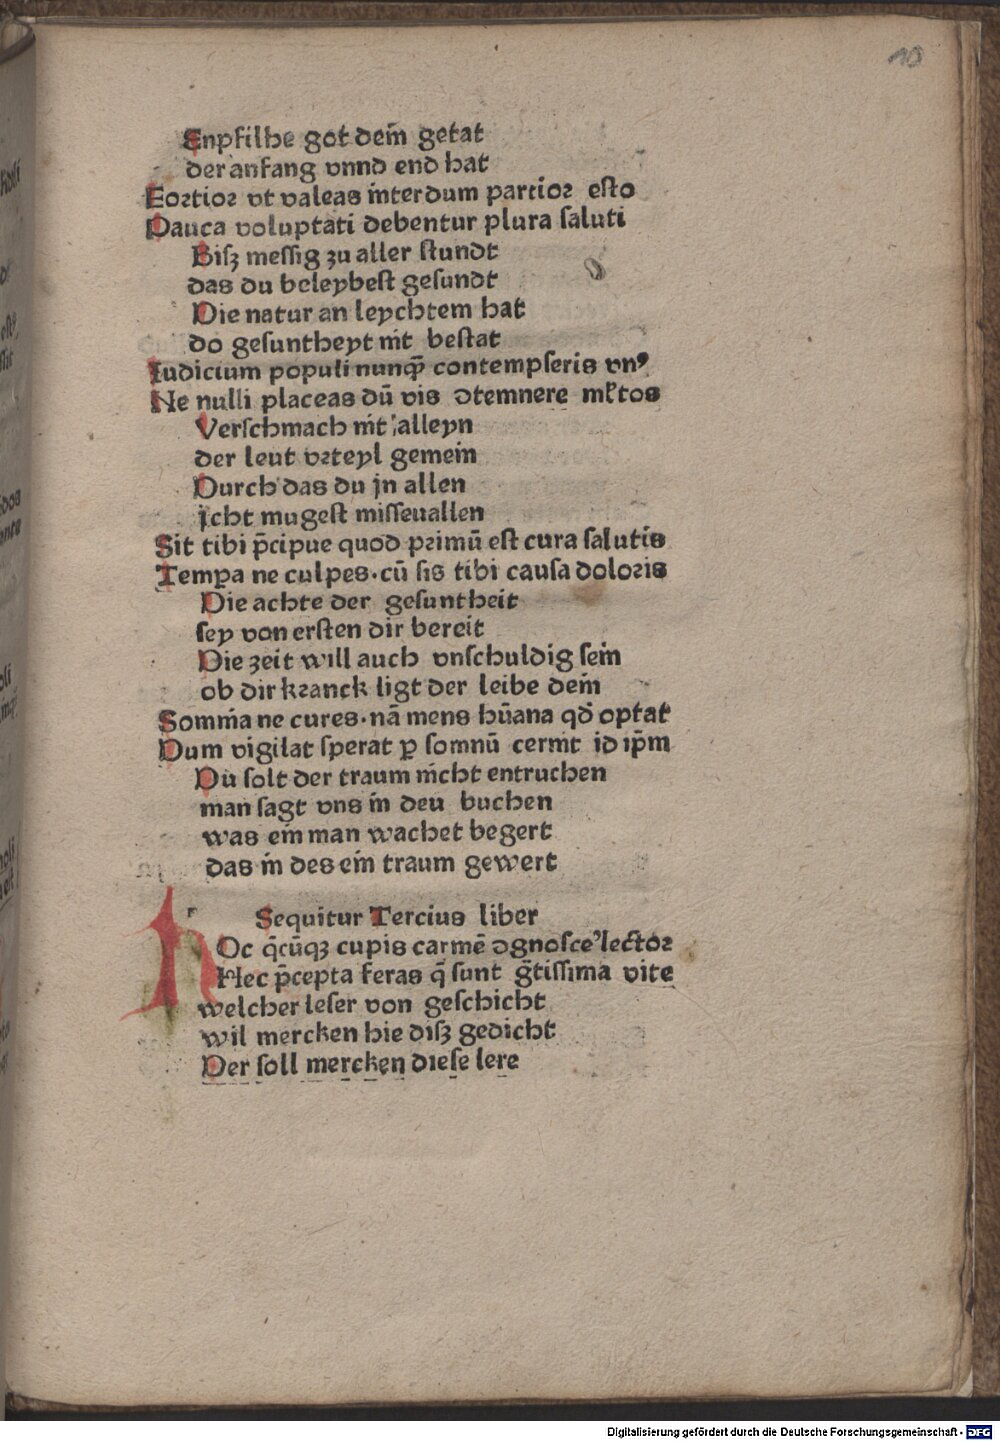 10
Enpfilhe got dem̄ getat
der anfang vnnd end hat
Fortior vt valeas interdum parcior esto
Pauca voluptati debentur plura saluti
Bisz messig zu aller stundt
das du beleybest gesundt
Die natur an leychtem hat
do gesuntheyt mit bestat
Iudicium populi nunq̄ contempseris vnꝰ
Ne nulli placeas dū vis ꝯtemnere ml̄tos
Verschmach nit alleyn
der leut vrteyl gemein
Durch das du jn allen
jcht mugest misseuallen
Sit tibi p̄cipue quod primū est cura salutis
Tempa ne culpes·cū sis tibi causa doloris
Die achte der gesuntheit
sey von ersten dir bereit
Die zeit will auch vnschuldig sein
ob dir kranck ligt der leibe dein
Somn̄a ne cures·nā mens hūana qd̄ optat
Dum vigilat sperat ꝑ somnū cernit id ip̄m
Du solt der traum nicht entruchen
man sagt vns in deu buchen
was ein man wachet begert
das in des ein traum gewert
Sequitur Tercius liber
HOc q̄cūqꝫ cupis carmē ꝯgnosceʼlector
Hec p̄cepta feras q̄ sunt ḡtissima vite
welcher leser von geschicht
wil mercken hie disz gedicht
Der soll mercken diese lere
Digitalisierung gefördert durch die Deutsche Forschungsgemeinschaft - DFG